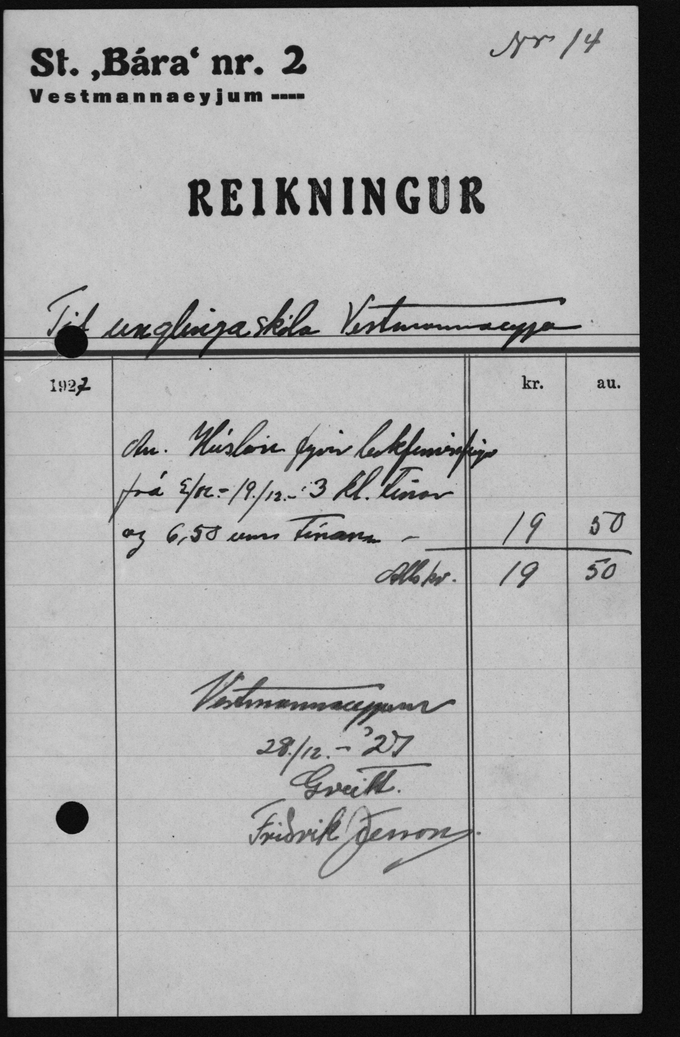 Nr 14
St. ‚Bára‘ nr. 2
Vestmannaeyjum
REIKNINGUR
Til unglingaskóla Vestmannaeyja
1927 kr. au.
An. Húslán fyrir
frá 5/12 - 19/12 - 3 kl. tímar
og 6,50 um tímann - 19 50
Alls kr. 19 50
Vestmannaeyjum
28/12. - '27
Greitt.
Friðrik Jesson.